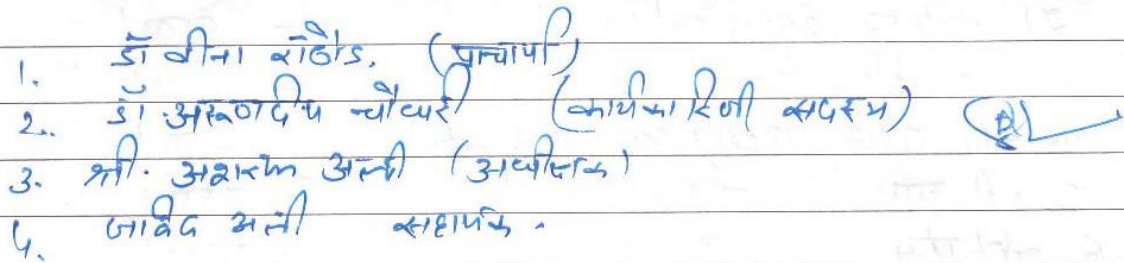 1. डॉ वीना राठौड. (प्राचार्या)
2. डॉ. अरूणदीप चौधरी (कार्यकारिणी सदस्य)
3. श्री. अशरफ अली (अधीक्षक)
4. जावेद अली सहायक.